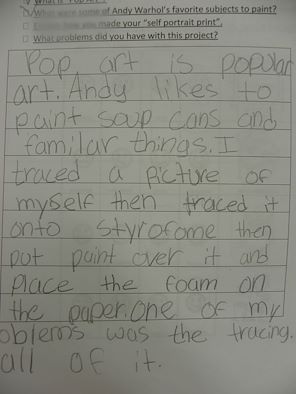 What is "Pop Art"?
What were some of Andy Warhol's favorite subjects to paint?
Explain how you made your "self portrait print".
What problems did you have with this project?
Pop art is popular
art. Andy likes to
paint soup cans and
familar things. I
traced a picture of
myself then traced it
onto styrofome then
put paint over it and
place the foam on
the paper. one of my
oblems was the tracing.
all of it.